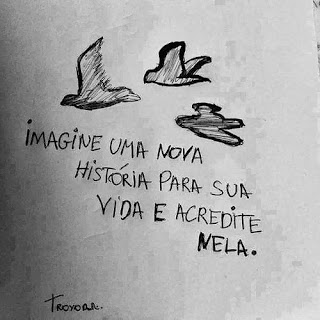 iMAGINE UMA NOVA
HISTÓRIA PARA SUA
VIDA E ACREDITE
NELA.